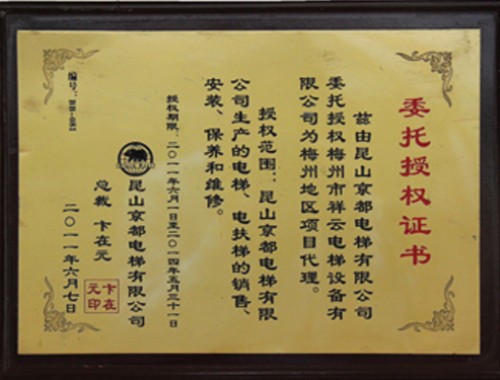 委托授权证书
兹由昆山京都电梯有限公司
委托授权梅州市祥云电梯设备有
限公司为梅州地区项目代理。
授权范围：昆山京都电梯有限
公司生产的电梯、电扶梯的销售、
安装、保养和维修。
授权期限：二〇一一年六月一日至二〇一四年五月三十一日
昆山京都电梯有限公司
总裁 卞在元
卞在
元印
二〇一一年六月七日
编号：